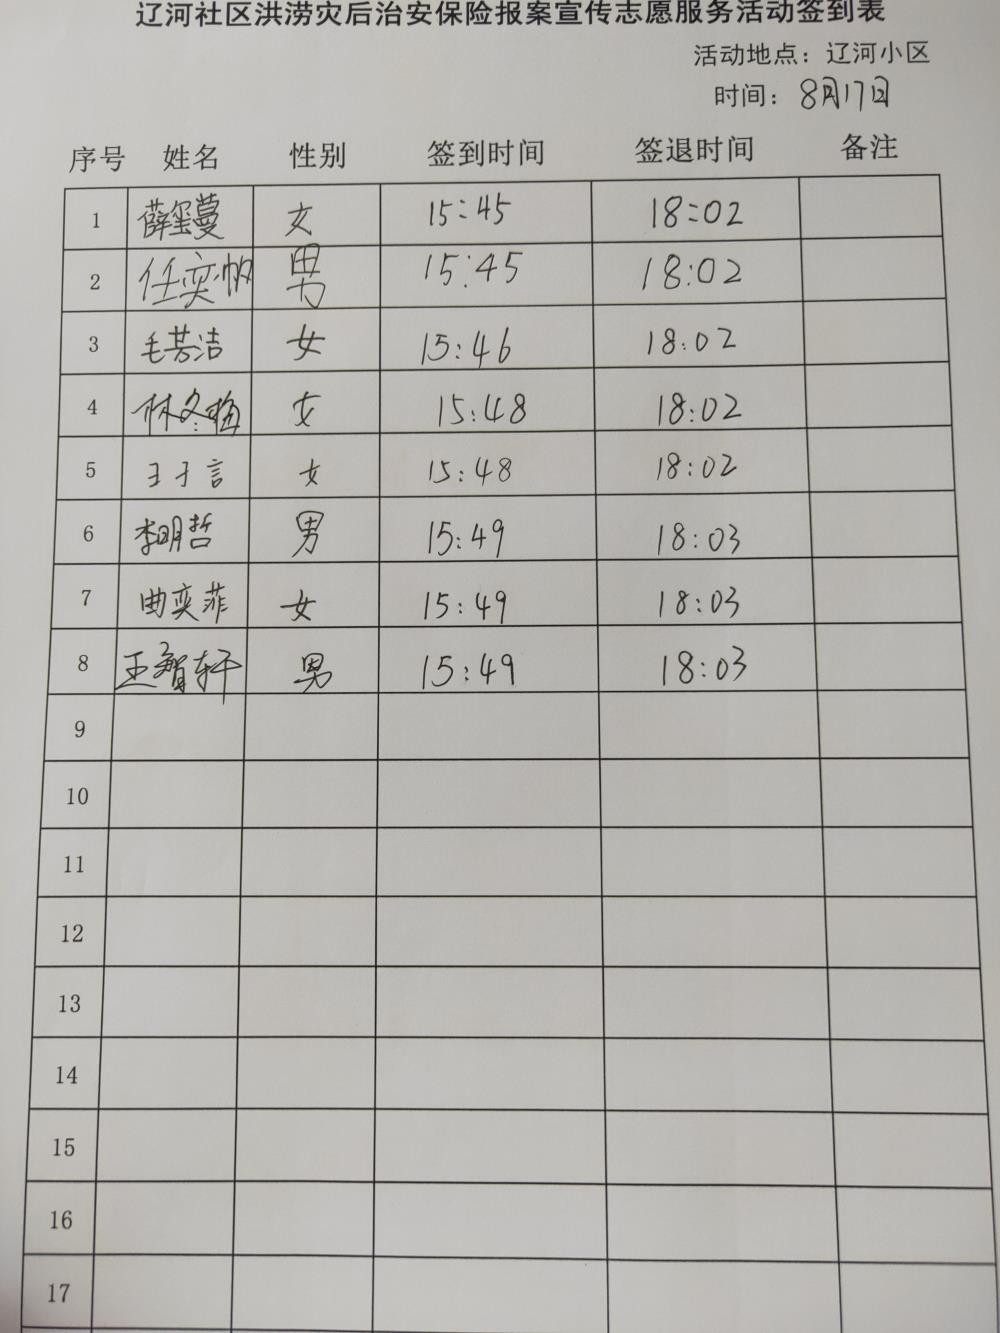 辽河社区洪涝灾后治安保险报案宣传志愿服务活动签到表
活动地点：辽河小区
时间：8月17日
序号 姓名 性别 签到时间 签退时间 备注
1 薛玺蔓 女 15:45 18:02
2 任奕帆 男 15:45 18:02
3 毛芳洁 女 15:46 18:02
4 林冬梅 女 15:48 18:02
5 王子言 女 15:48 18:02
6 李明哲 男 15:49 18:03
7 曲奕菲 女 15:49 18:03
8 王智轩 男 15:49 18:03
9
10
11
12
13
14
15
16
17